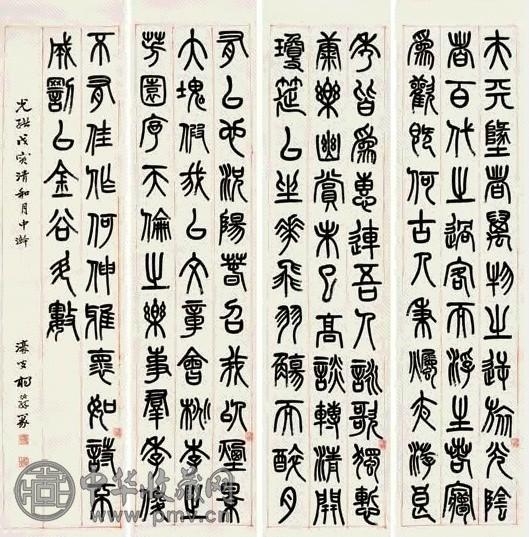 夫天墬者萬物之逆旅光陰
者百代之過客而浮生若夢
爲歡幾何古人秉燭夜游良
秀皆爲惠連吾人詠歌獨慙
康樂幽賞未已高談轉清開
瓊筵以坐華飛羽觴而醉月
有以也況陽春召我以煙景
大塊假我以文章會桃李之
芳園序天倫之樂事羣季俊
不有佳作何伸雅懷如詩不
成罰以金谷酒數
光緒戊寅清和月中澣
濠叟楊沂孫
中华收藏网
www.pmv.cn